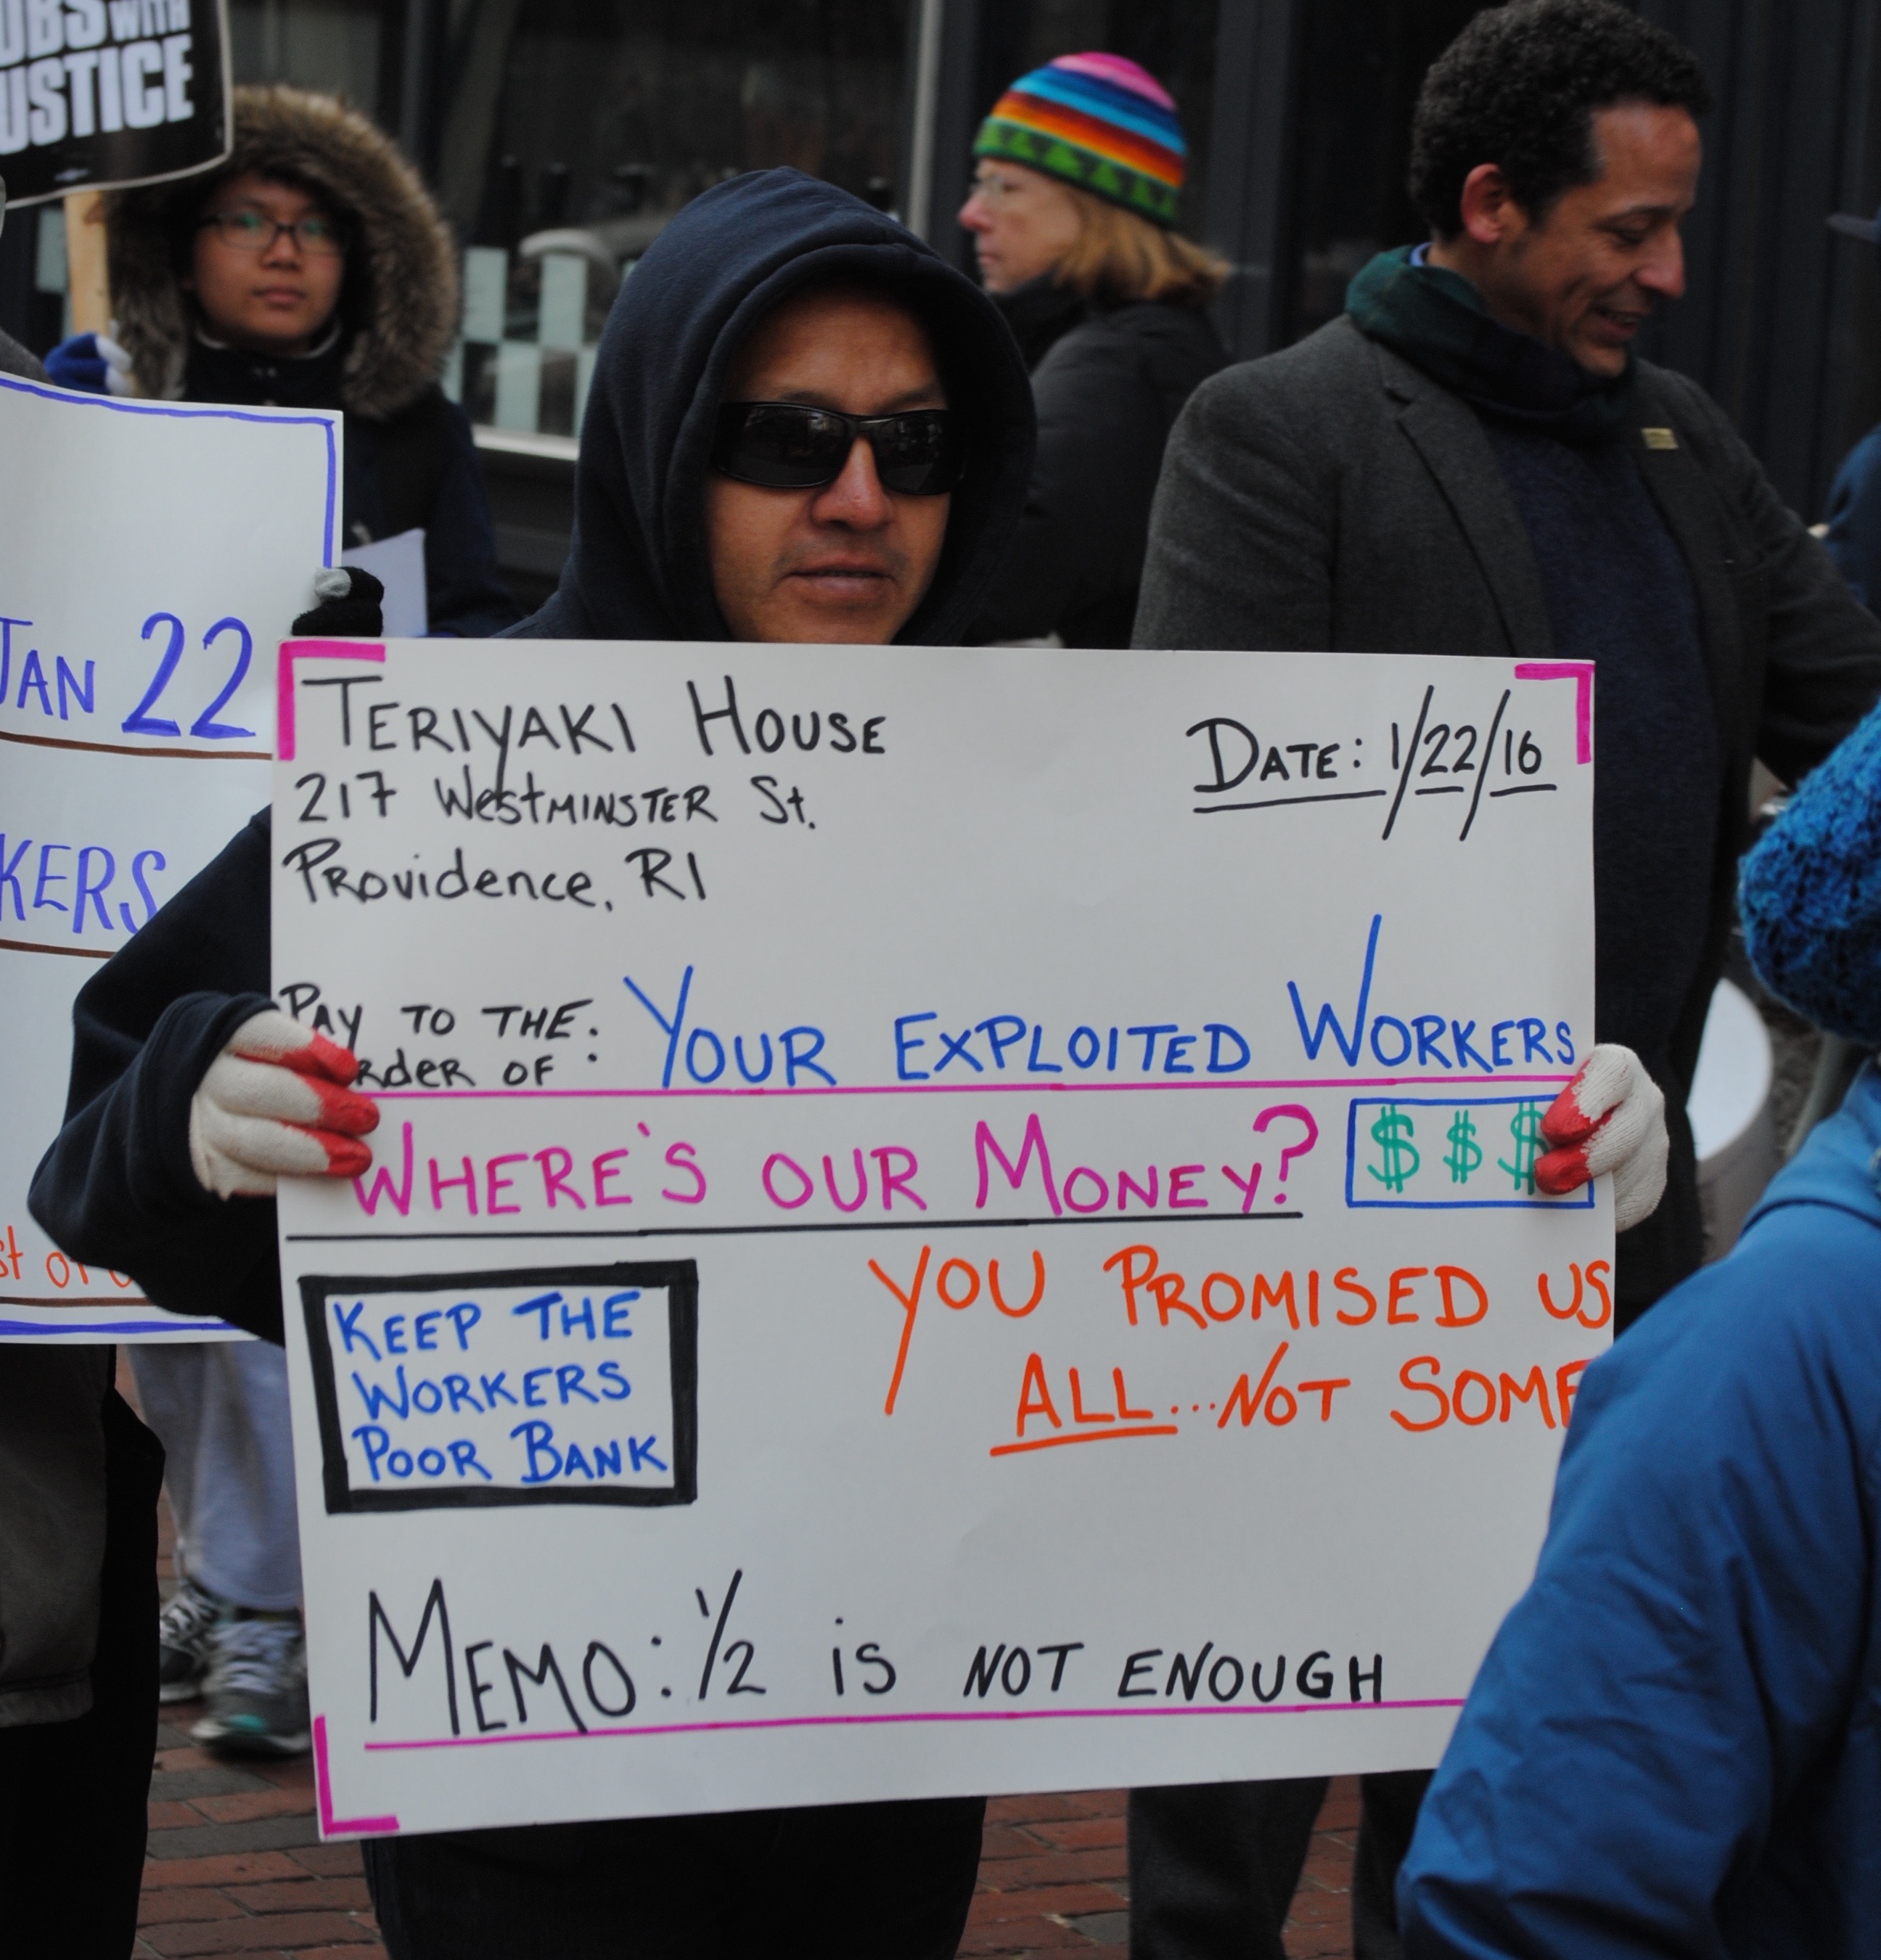 WITH
JUSTICE
JAN 22
TERIYAKI HOUSE
217 WestMINSTER St.
PROVidence, RI
DATE: 1/22/16
PAY TO THE:
ORdER OF:
YOUR EXPLOITED WORKERS
WHERE'S OUR MONEY?
$ $ $
YOU PROMISED US
ALL...NOT SOME
KEEP THE
WORKERS
POOR BANK
MEMO: 1/2 is NOT ENOUGH